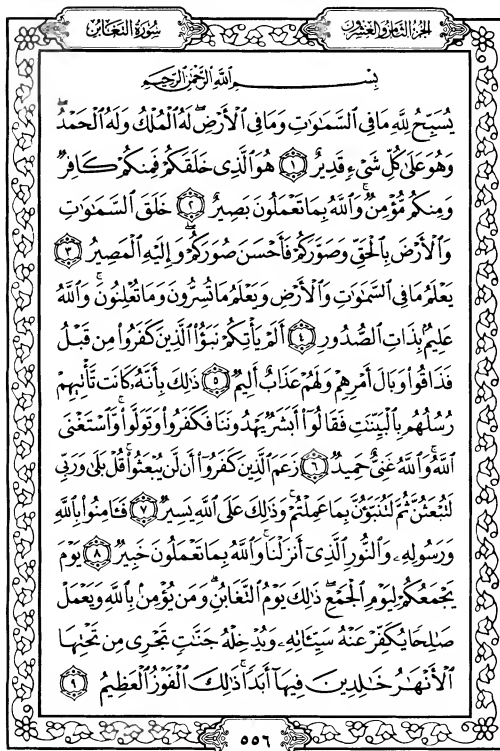 الجزء الثامن والعشرون
سورة التغابن
بِسْمِ اللَّهِ الرَّحْمَٰنِ الرَّحِيمِ
يُسَبِّحُ لِلَّهِ مَا فِي السَّمَٰوَٰتِ وَمَا فِي الْأَرْضِ ۖ لَهُ الْمُلْكُ وَلَهُ الْحَمْدُ ۖ
وَهُوَ عَلَىٰ كُلِّ شَيْءٍ قَدِيرٌ ۝١ هُوَ الَّذِي خَلَقَكُمْ فَمِنكُمْ كَافِرٌ
وَمِنكُم مُّؤْمِنٌ ۚ وَاللَّهُ بِمَا تَعْمَلُونَ بَصِيرٌ ۝٢ خَلَقَ السَّمَٰوَٰتِ
وَالْأَرْضَ بِالْحَقِّ وَصَوَّرَكُمْ فَأَحْسَنَ صُوَرَكُمْ ۖ وَإِلَيْهِ الْمَصِيرُ ۝٣
يَعْلَمُ مَا فِي السَّمَٰوَٰتِ وَالْأَرْضِ وَيَعْلَمُ مَا تُسِرُّونَ وَمَا تُعْلِنُونَ ۚ وَاللَّهُ
عَلِيمٌ بِذَاتِ الصُّدُورِ ۝٤ أَلَمْ يَأْتِكُمْ نَبَؤُا۟ الَّذِينَ كَفَرُوا۟ مِن قَبْلُ
فَذَاقُوا۟ وَبَالَ أَمْرِهِمْ وَلَهُمْ عَذَابٌ أَلِيمٌ ۝٥ ذَٰلِكَ بِأَنَّهُۥ كَانَت تَّأْتِيهِمْ
رُسُلُهُم بِالْبَيِّنَٰتِ فَقَالُوٓا۟ أَبَشَرٌ يَهْدُونَنَا فَكَفَرُوا۟ وَتَوَلَّوا۟ ۚ وَّاسْتَغْنَى
اللَّهُ ۚ وَاللَّهُ غَنِيٌّ حَمِيدٌ ۝٦ زَعَمَ الَّذِينَ كَفَرُوٓا۟ أَن لَّن يُبْعَثُوا۟ ۚ قُلْ بَلَىٰ وَرَبِّي
لَتُبْعَثُنَّ ثُمَّ لَتُنَبَّؤُنَّ بِمَا عَمِلْتُمْ ۚ وَذَٰلِكَ عَلَى اللَّهِ يَسِيرٌ ۝٧ فَـَٔامِنُوا۟ بِاللَّهِ
وَرَسُولِهِۦ وَالنُّورِ الَّذِيٓ أَنزَلْنَا ۚ وَاللَّهُ بِمَا تَعْمَلُونَ خَبِيرٌ ۝٨ يَوْمَ
يَجْمَعُكُمْ لِيَوْمِ الْجَمْعِ ۖ ذَٰلِكَ يَوْمُ التَّغَابُنِ ۗ وَمَن يُؤْمِنۢ بِاللَّهِ وَيَعْمَلْ
صَٰلِحًا يُكَفِّرْ عَنْهُ سَيِّـَٔاتِهِۦ وَيُدْخِلْهُ جَنَّٰتٍ تَجْرِي مِن تَحْتِهَا
الْأَنْهَٰرُ خَٰلِدِينَ فِيهَآ أَبَدًا ۚ ذَٰلِكَ الْفَوْزُ الْعَظِيمُ ۝٩
٥٥٦